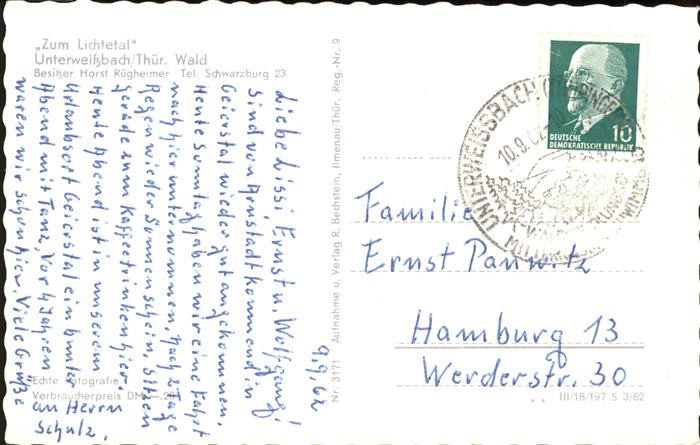 „Zum Lichtetal"
Unterweißbach/Thür. Wald
Besitzer Horst Rügheimer Tel. Schwarzburg 23
9.9.62
Liebe Lissi, Ernst u. Wolfgang!
Sind von Arnstadt kommend in
Geierstal wieder gut angekommen.
Heute Sonntag haben wir eine Fahrt
nach hier unternommen. Nach 2 Tage
Regen wieder Sonnenschein. Sitzen
gerade zum Kaffeetrinken hier.
Heute Abend ist in unserem
Urlaubsort Geierstal ein bunter
Abend mit Tanz. Vor 4 Jahren
waren wir schon hier. Viele Grüße
an Herrn
Schulz.
Echte Fotografie
Verbraucherpreis DM
Nr. 3171 Aufnahme u. Verlag R. Bechstein, Ilmenau/Thür. Reg.-Nr. 9
10
DEUTSCHE
DEMOKRATISCHE REPUBLIK
UNTERWEISSBACH (THÜRINGER
10.9.62
Familie
Ernst Panwitz
Hamburg 13
Werderstr. 30
III/18/197 S 3/62